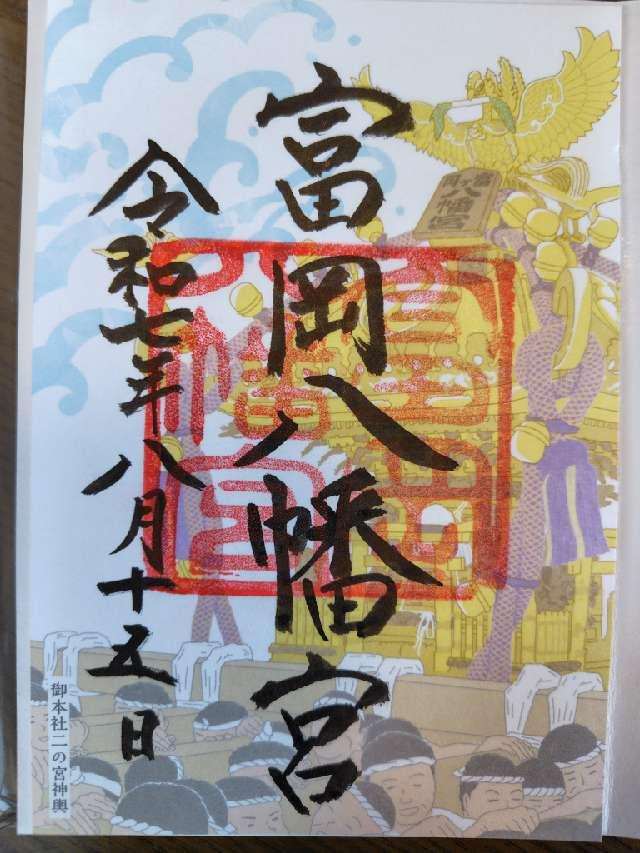 富岡八幡宮
令和七年八月十五日
御本社二の宮神輿
八幡宮